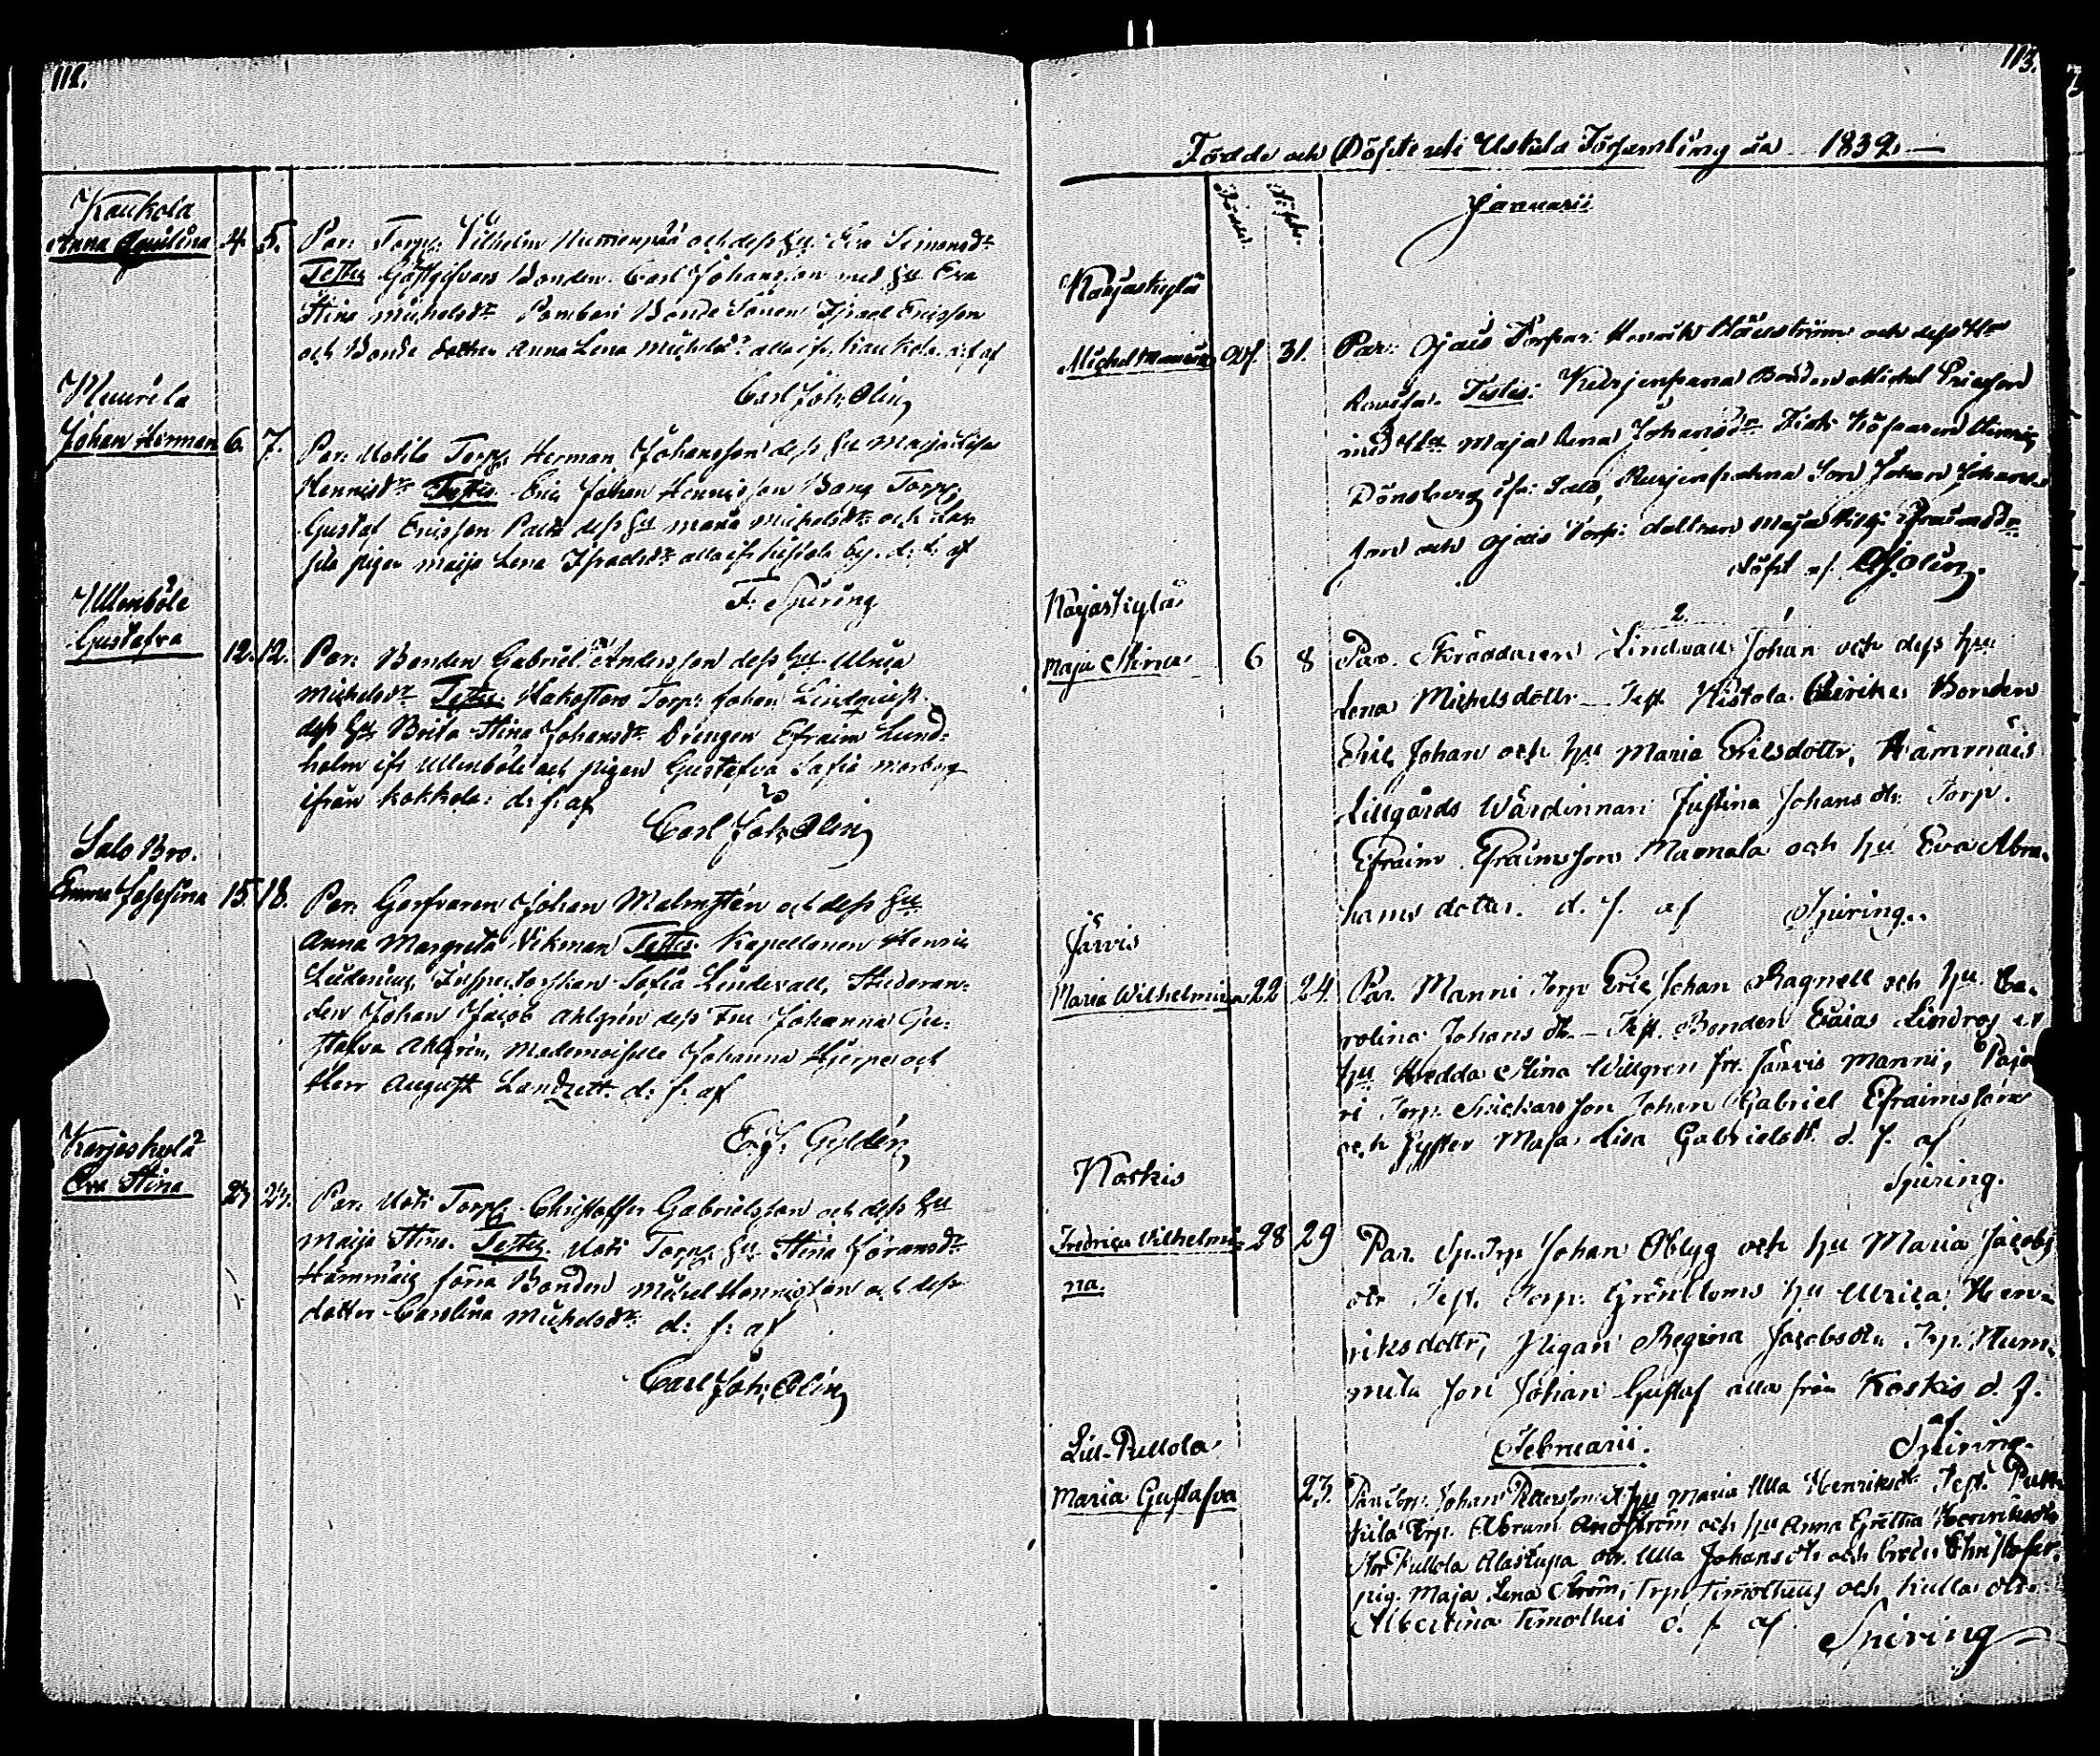 112.
Kaukola
Anna Paulina 4. 5. Par: Torp: Vilhelm Nummenpää och dess Hu: Eva Simonsdr
Testes Gästgifvars Bonden Carl Johansson med Hu Eva
Stina Michelsdr Pamberi Bonde Sonen Israel Ericsson
och Bonde dotter Anna Lena Michelsdr alla ifr. Kaukola. d: f: af
Carl Joh: Olin
Muurila
Johan Herman 6. 7. Par: Uotila Torp: Herman Johansson dess Hu Maja Lisa
Hennisdr Testis. Eric Johan Hennisson Bang Torp:
Gustaf Ericsson Palt dess Hu Maria Michelsdr och
pigan Maija Lena Israelsdr alla ifr by. d: f: af
F: Spiring
Ullenböle
Gustafva 12. 12. Par: Bonden Gabriel Andersson dess Hu Ulrica
Michelsdr Testis. Torp: Johan Lindquist
dess Hu: Brita Stina Johansdr Drengen Efraim Lund-
holm ifr Ullenböle och pigan Gustafva Safia Morberg
ifrån Kokkola: d: f: af
Carl Joh: Olin
Salo Bro.
Emma Josefina 15. 18. Par: Garfvaren Johan Malmstén och dess Hu
Anna Margreta Vikman Testes. Kapellanen Henric
Ludenius, Inspectorskan Sofia Lindevall, Studeran-
den Johan Jacob Ahlgrén dess Fru Johanna Gu-
stafva Ahlgrén, Mademoiselle Johanna Hjerpe och
Herr August Landzett. d: f: af
E. J. Gyldén
Karjaskylä
Eva Stina 23. 23. Par: Uoti Torp: Christoffer Gabrielsson och dess Hu
Maija Stina. Testes. Uoti Torp: Hu Stina Göransdr
Hämmäis förra Bonden Michel Hennisson och dess
dotter Carolina Michelsdr d: f: af
Carl Joh: Olin
113.
Födde och Döpte uti Uskela Församling år 1839.
Födde. Döpte. Januarii
Karjaskylä
Michel 31. Par: Ojais Torpar: Henrik och dess Hu
Lovisa. Testes: Kurjenpana Bonden Michel Ericsson
med Hu Maja Lena Johansdr
Dönsberg ifr: Salo, Kurjenpahna Son Johan Johans-
son och Ojais Torp: dottren Maja
döpt af CJ Olin.
2.
Karjaskylä
Maja Stina 6 8 Par. Skräddaren Lindvall Johan och dess hu
Lena Michelsdottr Test. Kistola Bonden
Eric Johan och hu Maria Ericsdottr, Hämmäis
Lillgårds Wärdinnan Justina Johansdtr Torp.
Efraim Efraimsson Mannala och hu Eva Abra-
hams dotter. d. f. af Spiring.
Järvis
Maria Wilhelmina 22 24. Par. Manni Torp Eric Johan Ragnell och hu Ca-
rolina Johansdtr Test. Bonden Esaias Lindros och
hu Hedda Stina Willgren fr. Järvis Manni, Paja-
ri Torp. Snickars son Johan Gabriel Efraimsson
och Syster Maja Lisa Gabrielsdtr d. f. af
Spiring.
Koskis
Fredrica Vilhelmi- 28 29 Par. Sp. Trp Johan Oblyg och hu Maria Jacobs
na. dtr Test. Torp. Grönbloms hu Ulrica Hen-
riksdottr, Pigan Regina Jacobsdtr Trp. Num-
mila son Johan Gustaf alla från Koskis d. f.
af
Spiring.
Februarii.
Lill-Pullola
Maria Gustafva 23. Par Torp. Johan Pettersson och hu Maria Ulla Henriksdtr Test. Puk-
kila Trp. Abram Andström och hu Anna Gretha Henriksdtr
Stor Pullola Alastupa dtr. Ulla Johansdtr och Christofer,
pig. Maja Lena Ström, Trp Timotheus och Kulla dtr.
Albertina Timothei d. f. af
Spiring